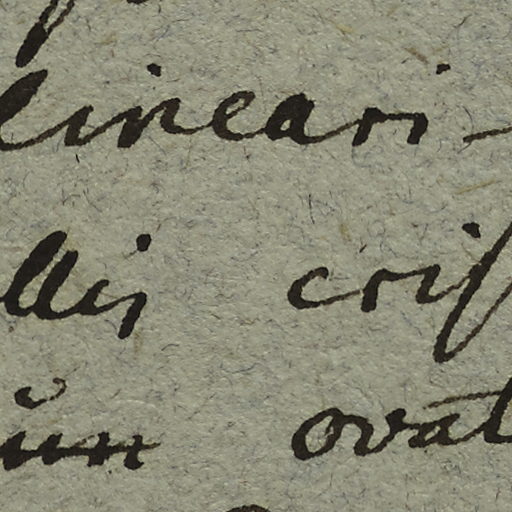 lineari-
llis cris
ŭn ovat